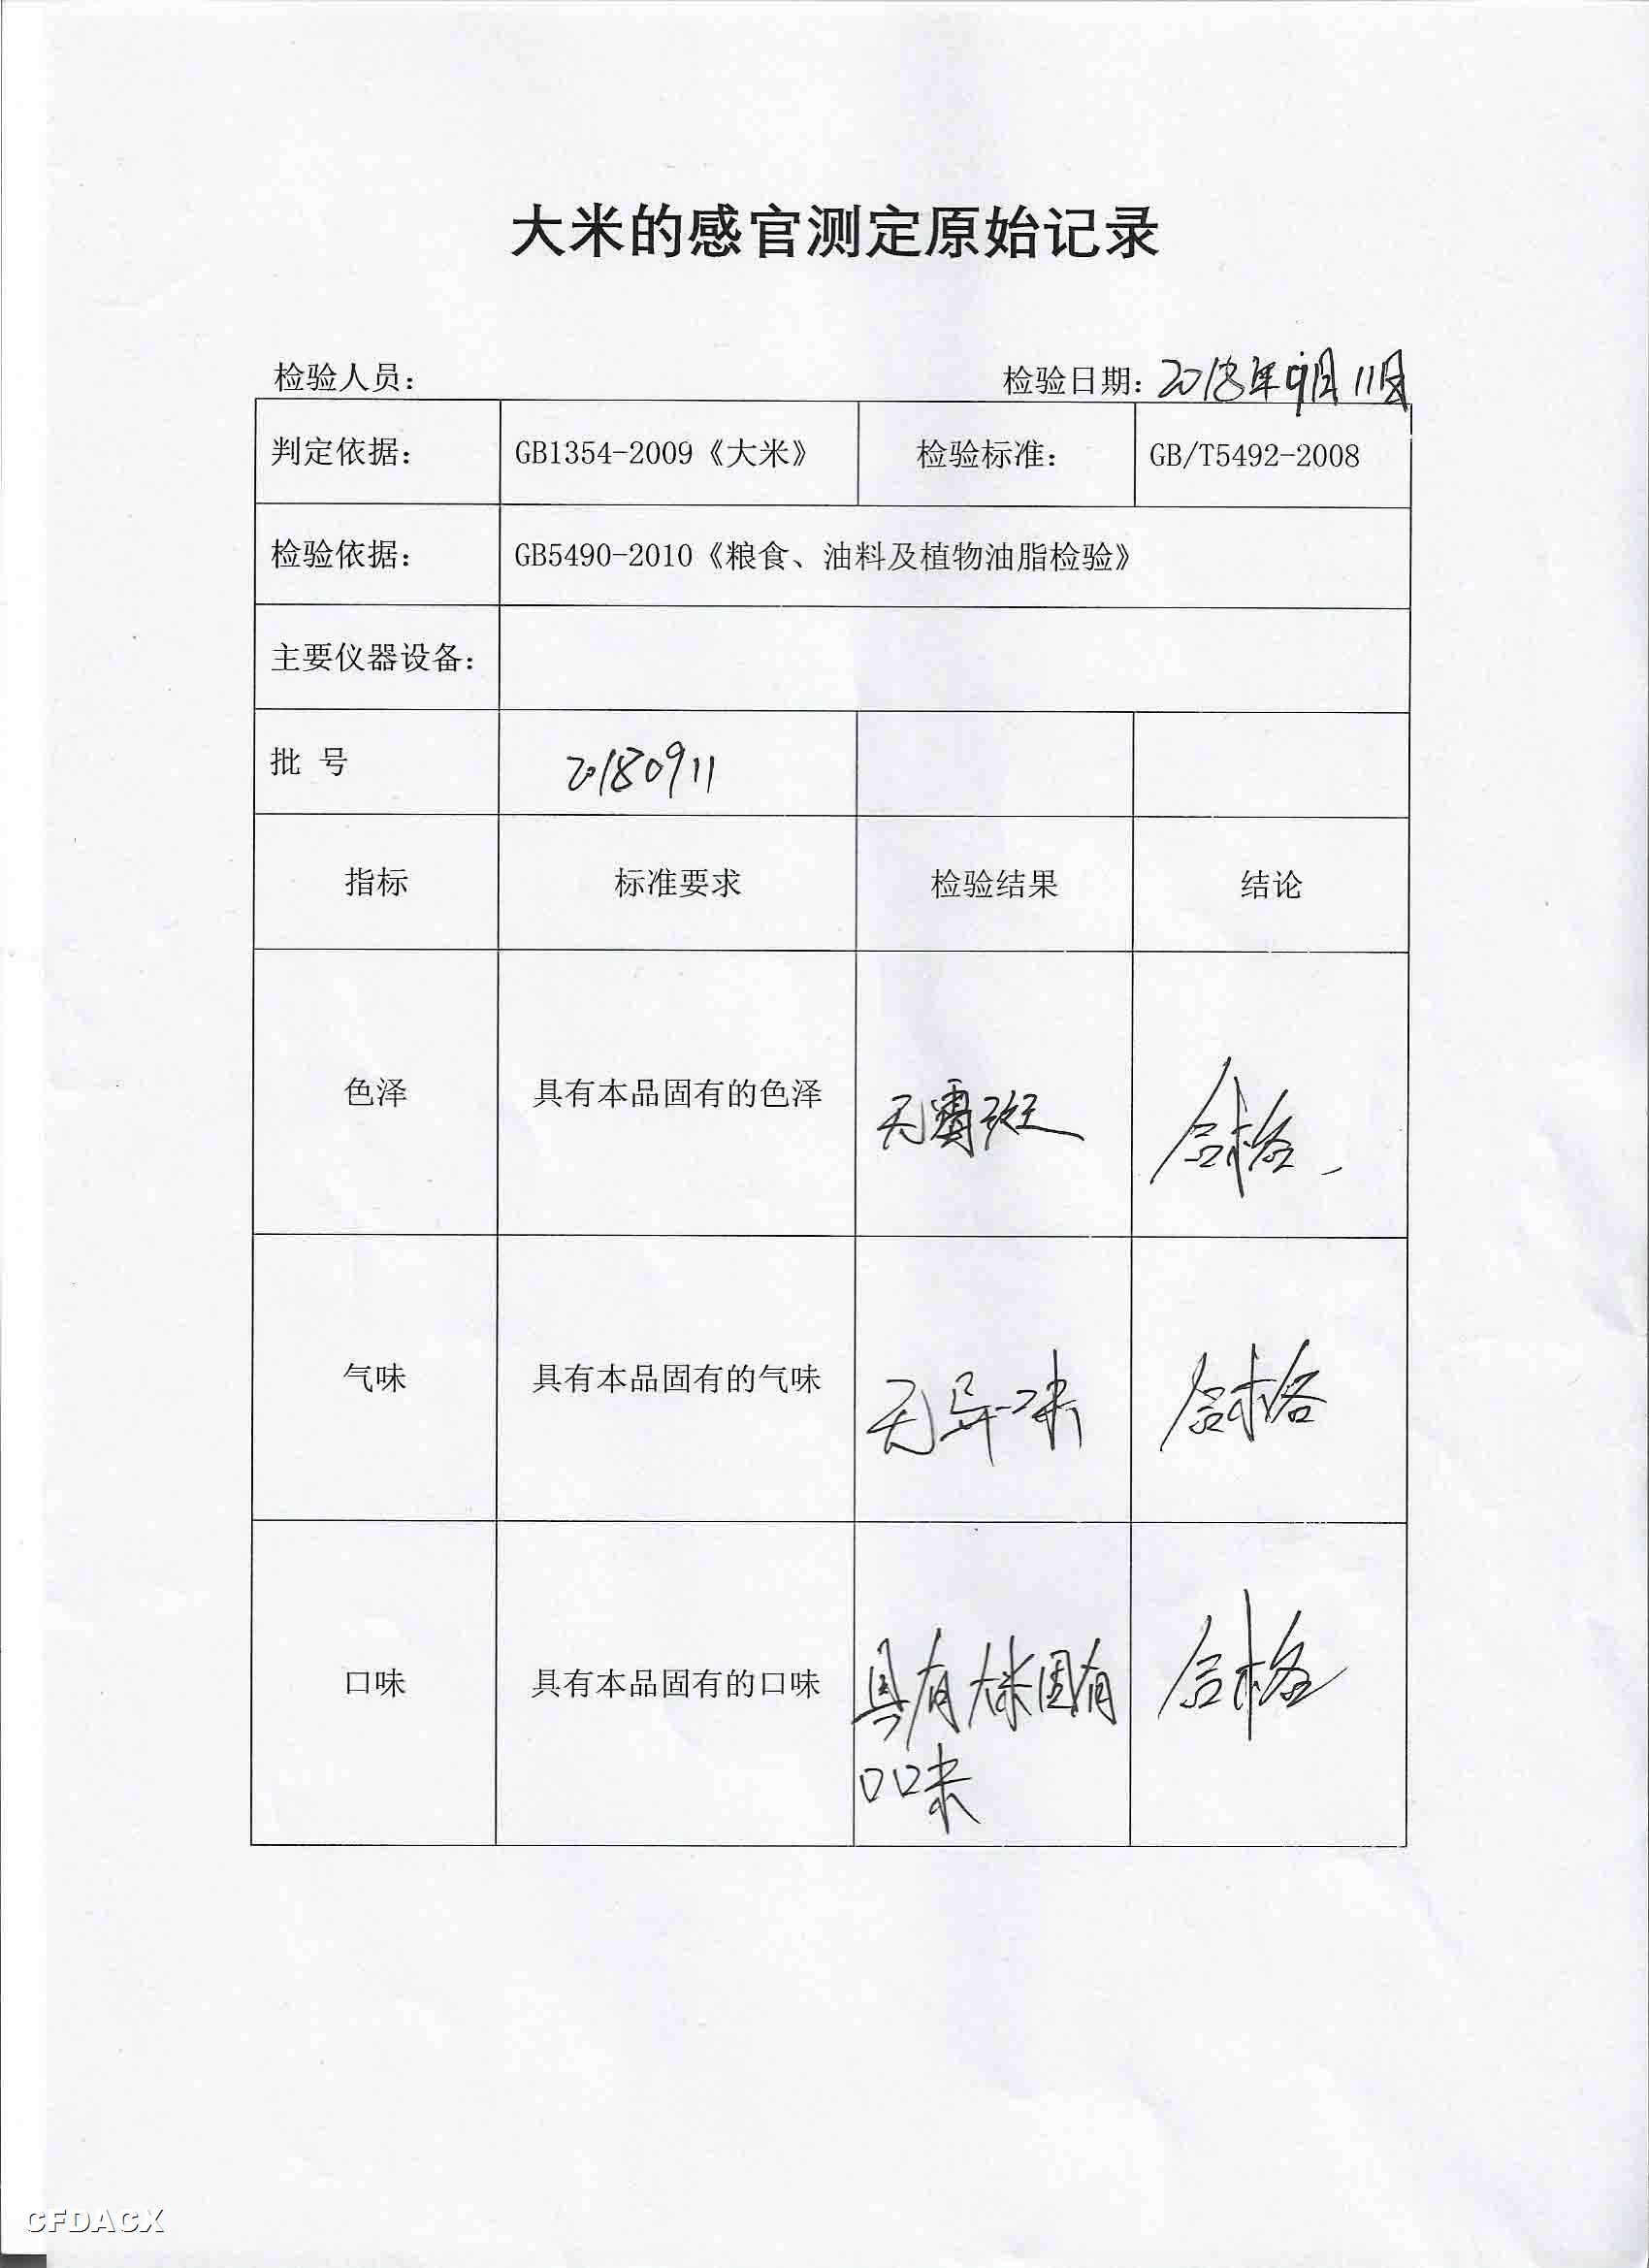 大米的感官测定原始记录
检验人员: 检验日期: 2018年9月11日
判定依据: GB1354-2009《大米》 检验标准: GB/T5492-2008
检验依据: GB5490-2010《粮食、油料及植物油脂检验》
主要仪器设备:
批 号 20180911
指标 标准要求 检验结果 结论
色泽 具有本品固有的色泽 无霉斑 合格
气味 具有本品固有的气味 无异味 合格
口味 具有本品固有的口味 具有大米固有 合格
口味
CFDACX